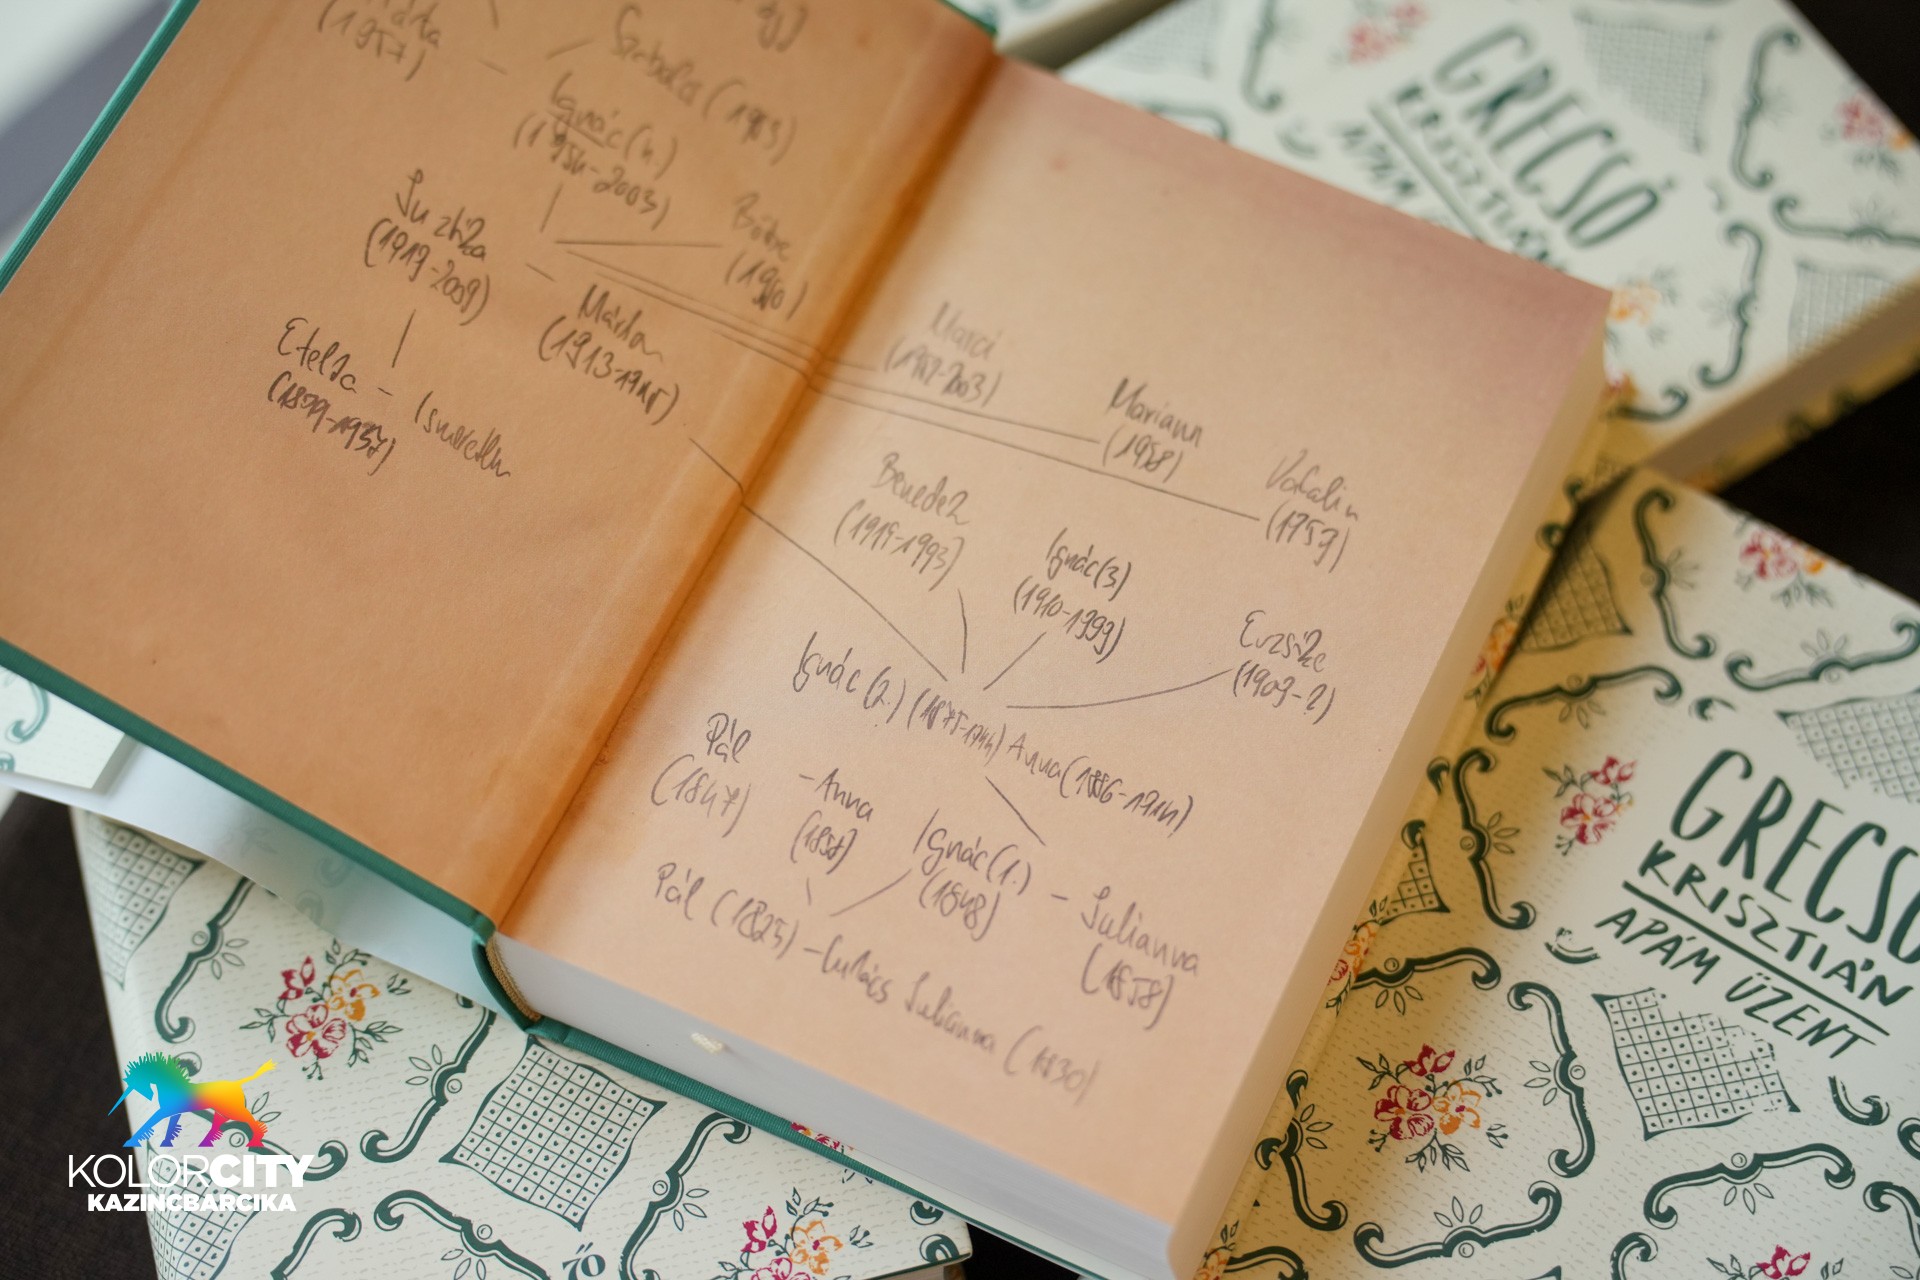 (1957)
Szabolcs (1983)
Ignác (4.)
(1954-2003)
Zsuzsika
(1919-2009)
Bőbe
(1960)
Márton
(1913-1945)
Etelka -
(1899-1937)
Marci
(1952-2003)
Mariann
(1958)
Katalin
(1957)
Benedek
(1915-1993)
Ignác (3.)
(1910-1999)
Erzsike
(1909-?)
Ignác (2.) (1875-1944) Anna (1886-1914)
Pál
(1847)
- Anna
(1858)
Ignác (1.) - Julianna
(1848)
(1858)
Pál (1825) - Lukács Julianna (1830)
GRECSÓ
KRISZTIÁN
APÁM
GRECSÓ
KRISZTIÁN
APÁM ÜZENT
KOLORCITY
KAZINCBARCIKA